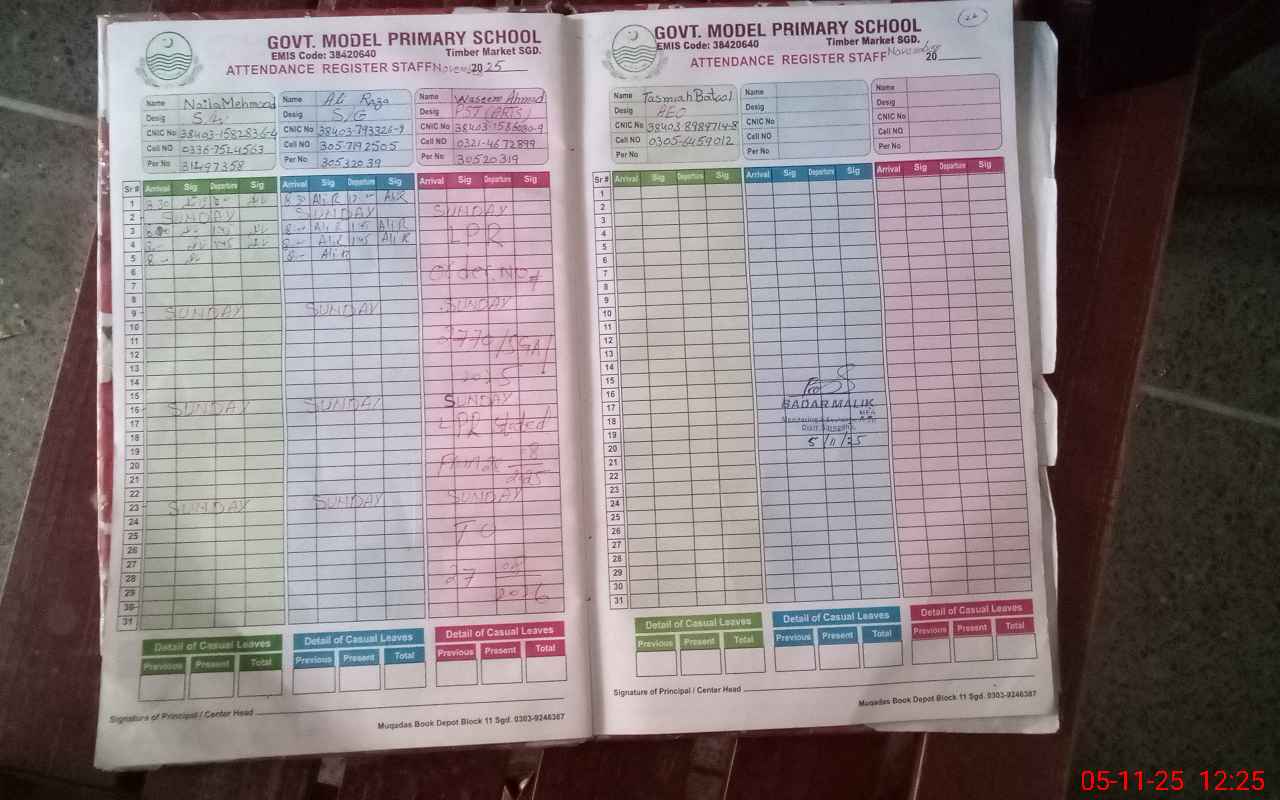 GOVT. MODEL PRIMARY SCHOOL
EMIS Code: 38420640 Timber Market SGD.
ATTENDANCE REGISTER STAFF November 2025
Name Naila Mehmood Name Ali Raza Name Waseem Ahmad
Desig Desig S/G Desig PST (ARTS)
CNIC No CNIC No 38403-793326-9 CNIC No
Cell NO 0336-7524563 Cell NO 305-7192505 Cell NO 0321-4672899
Per No 31497358 Per No 30532039 Per No 30520319
Sr # Arrival Sig Departure Sig Arrival Sig Departure Sig Arrival Sig Departure Sig
1 8 30 8 30 Ali R Ali R
2 SUNDAY SUNDAY SUNDAY
3 8 Ali R 145 Ali R LPR
4 8 145 8 Ali R 145 Ali R
5 8 8 Ali R
6 Order No
7
8
9 SUNDAY SUNDAY SUNDAY
10
11
12
13
14 2025
15
16 SUNDAY SUNDAY SUNDAY
17 LPR Stated
18
19
20
21 2025
22
23 SUNDAY SUNDAY SUNDAY
24
25 TO
26
27
28 27
29 2026
30
31
Detail of Casual Leaves Detail of Casual Leaves Detail of Casual Leaves
Previous Present Total Previous Present Total Previous Present Total
Signature of Principal / Center Head
Muqadas Book Depot Block 11 Sgd. 0303-9246387
GOVT. MODEL PRIMARY SCHOOL
EMIS Code: 38420640 Timber Market SGD.
ATTENDANCE REGISTER STAFF November 20
Name Tasmiah Batool Name Name
Desig Desig Desig
CNIC No 38403-8989714-8 CNIC No CNIC No
Cell NO 0305-6459012 Cell NO Cell NO
Per No Per No Per No
Sr # Arrival Sig Departure Sig Arrival Sig Departure Sig Arrival Sig Departure Sig
1
2
3
4
5
6
7
8
9
10
11
12
13
14
15
16
17 BADAR MALIK
18
19
20 5/11/25
21
22
23
24
25
26
27
28
29
30
31
Detail of Casual Leaves Detail of Casual Leaves Detail of Casual Leaves
Previous Present Total Previous Present Total Previous Present Total
Signature of Principal / Center Head
Muqadas Book Depot Block 11 Sgd. 0303-9246387
05-11-25 12:25